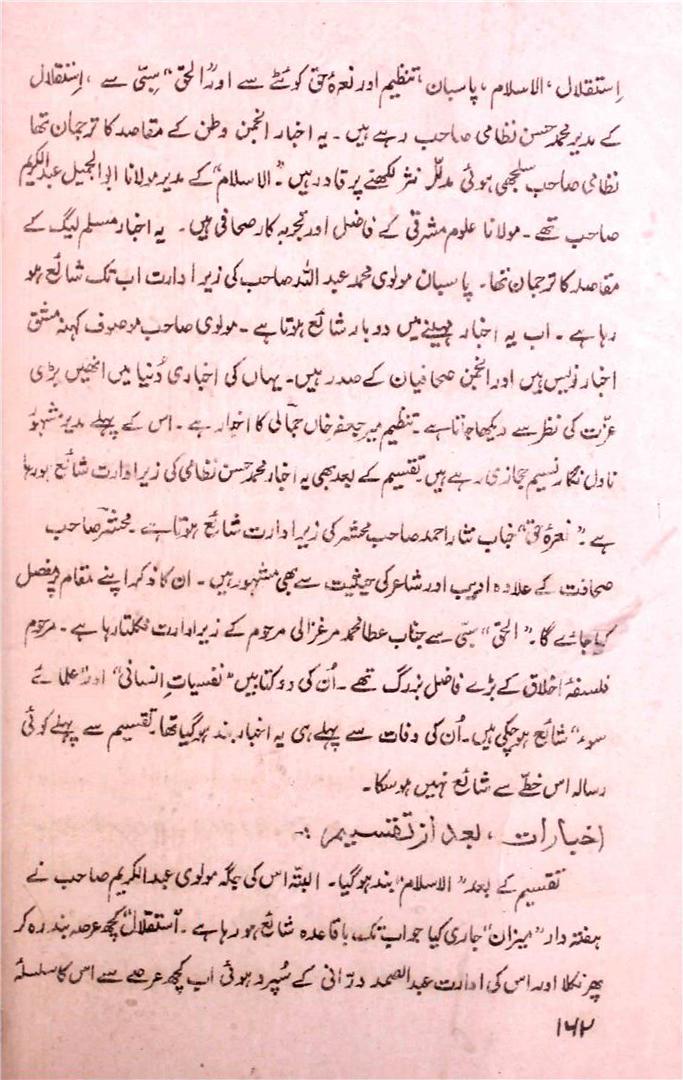 استقلال، الاسلام، پاسبان، تنظیم اور نعرۂ حق کوئٹے سے اور "الحق" سبّی سے، استقلال
کے مدیر محمد حسن نظامی صاحب رہے ہیں۔ یہ اخبار انجمن وطن کے مقاصد کا ترجمان تھا
نظامی صاحب سلجھی ہوئی مدلّل نثر لکھنے پر قادر ہیں۔ "الاسلام" کے مدیر مولانا ابوالجمیل عبدالکریم
صاحب تھے۔ مولانا علوم مشرقی کے فاضل اور تجربہ کار صحافی ہیں۔ یہ اخبار مسلم لیگ کے
مقاصد کا ترجمان تھا۔ پاسبان مولوی محمد عبد اللہ صاحب کی زیر ادارت اب تک شائع ہو
رہا ہے۔ اب یہ اخبار مہینے میں دو بار شائع ہوتا ہے۔ مولوی صاحب موصوف کہنہ مشق
اخبار نویس ہیں اور انجمن صحافیان کے صدر ہیں۔ یہاں کی اخباری دُنیا میں انھیں بڑی
عزّت کی نظر سے دیکھا جاتا ہے۔ تنظیم میر جعفر خاں جمالی کا اخبار ہے۔ اس کے پہلے مدیر مشہور
ناول نگار نسیم حجازی رہے ہیں۔ تقسیم کے بعد بھی یہ اخبار محمد حسن نظامی کی زیر ادارت شائع ہو رہا
ہے۔ "نعرۂ حق" جناب نثار احمد صاحب محشر کی زیر ادارت شائع ہوتا ہے۔ محشر صاحب
صحافت کے علاوہ ادیب اور شاعر کی حیثیت سے بھی مشہور ہیں۔ ان کا ذکر اپنے مقام پر مفصل
کیا جائے گا۔ "الحق" سبّی سے جناب عطا محمد مرغزانی مرحوم کے زیر ادارت نکلتا رہا ہے۔ مرحوم
فلسفۂ اخلاق کے بڑے فاضل بزرگ تھے۔ اُن کی دو کتابیں "نفسیات انسانی" اور "علمائے
سوء" شائع ہو چکی ہیں۔ اُن کی وفات سے پہلے ہی یہ اخبار بند ہو گیا تھا۔ تقسیم سے پہلے کوئی
رسالہ اس خطّے سے شائع نہیں ہو سکا۔
اخبارات، بعد از تقسیم :۔
تقسیم کے بعد "الاسلام" بند ہو گیا۔ البتّہ اس کی جگہ مولوی عبدالکریم صاحب نے
ہفتہ وار "میزان" جاری کیا جو اب تک باقاعدہ شائع ہو رہا ہے۔ "استقلال" کچھ عرصہ بند رہ کر
پھر نکلا اور اس کی ادارت عبدالصمد درّانی کے سُپرد ہوئی اب کچھ عرصے سے اس کا سلسلۂ
۱۶۲